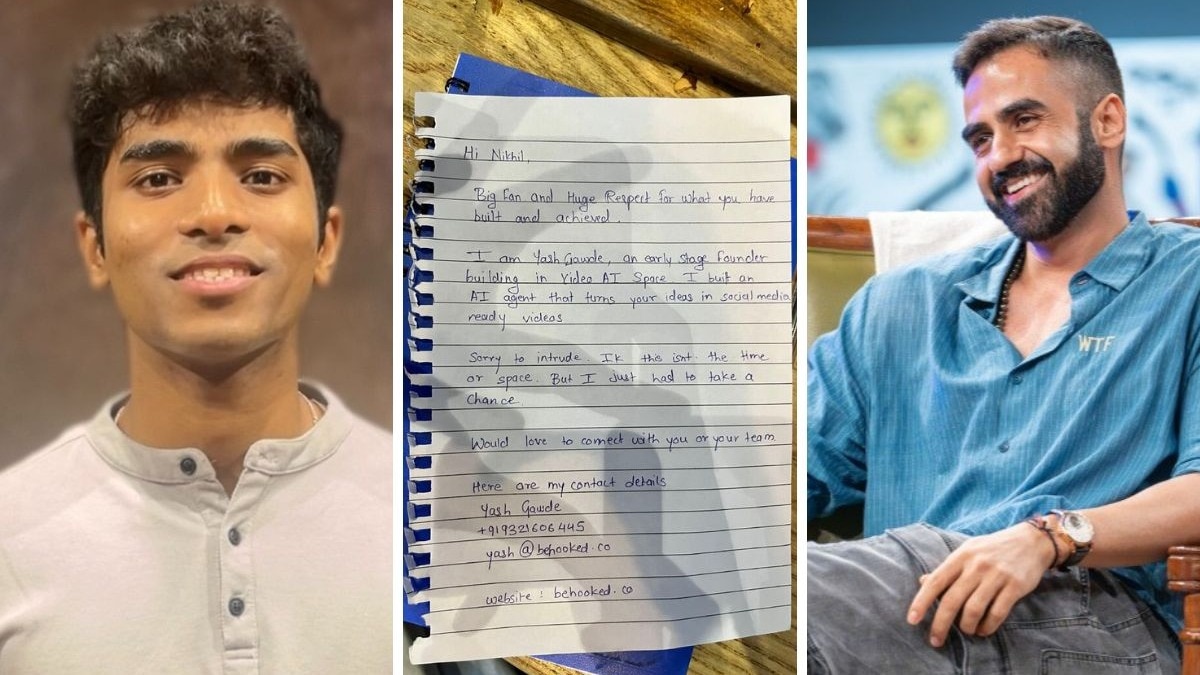 Hi Nikhil,
Big Fan and Huge Respect for what you have
built and achieved.
I am Yash Gawde, an early stage founder
building in Video AI Space. I built an
AI agent that turns your ideas in social media
ready videos
Sorry to intrude. Ik this isnt the time
or space. But I Just had to take a
Chance.
Would love to connect with you or your team
Here are my contact details
Yash Gawde
+919321606445
yash@behooked.co
website : behooked.co
WTF